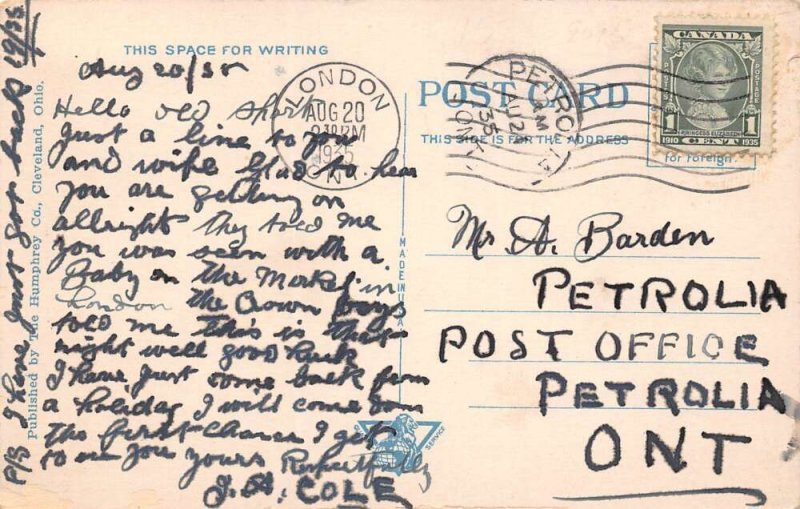 THIS SPACE FOR WRITING
Aug 20/35
Hello old Shark
Just a line to you
and wife Glad to hear
you are getting on
allright they told me
you was seen with a
Baby on the Market in
London the Crown boys
told me this is that
right well good luck
I have just come back from
a holiday I will come down
the first chance I get
to see you yours Respectfully
J. A. COLE
P/S I have just got back 19/35
Published by The Humphrey Co., Cleveland, Ohio.
LONDON
AUG 20
PM
1935
MADE IN U.S.A.
SERVICE
POST CARD
THIS SIDE IS FOR THE ADDRESS
PETROLIA
AM
AU 21
35
ONT.
CANADA
POSTAGE
1 1
PRINCESS ELIZABETH
1910 CENT 1935
for foreign.
Mr A. Barden
PETROLIA
POST OFFICE
PETROLIA
ONT